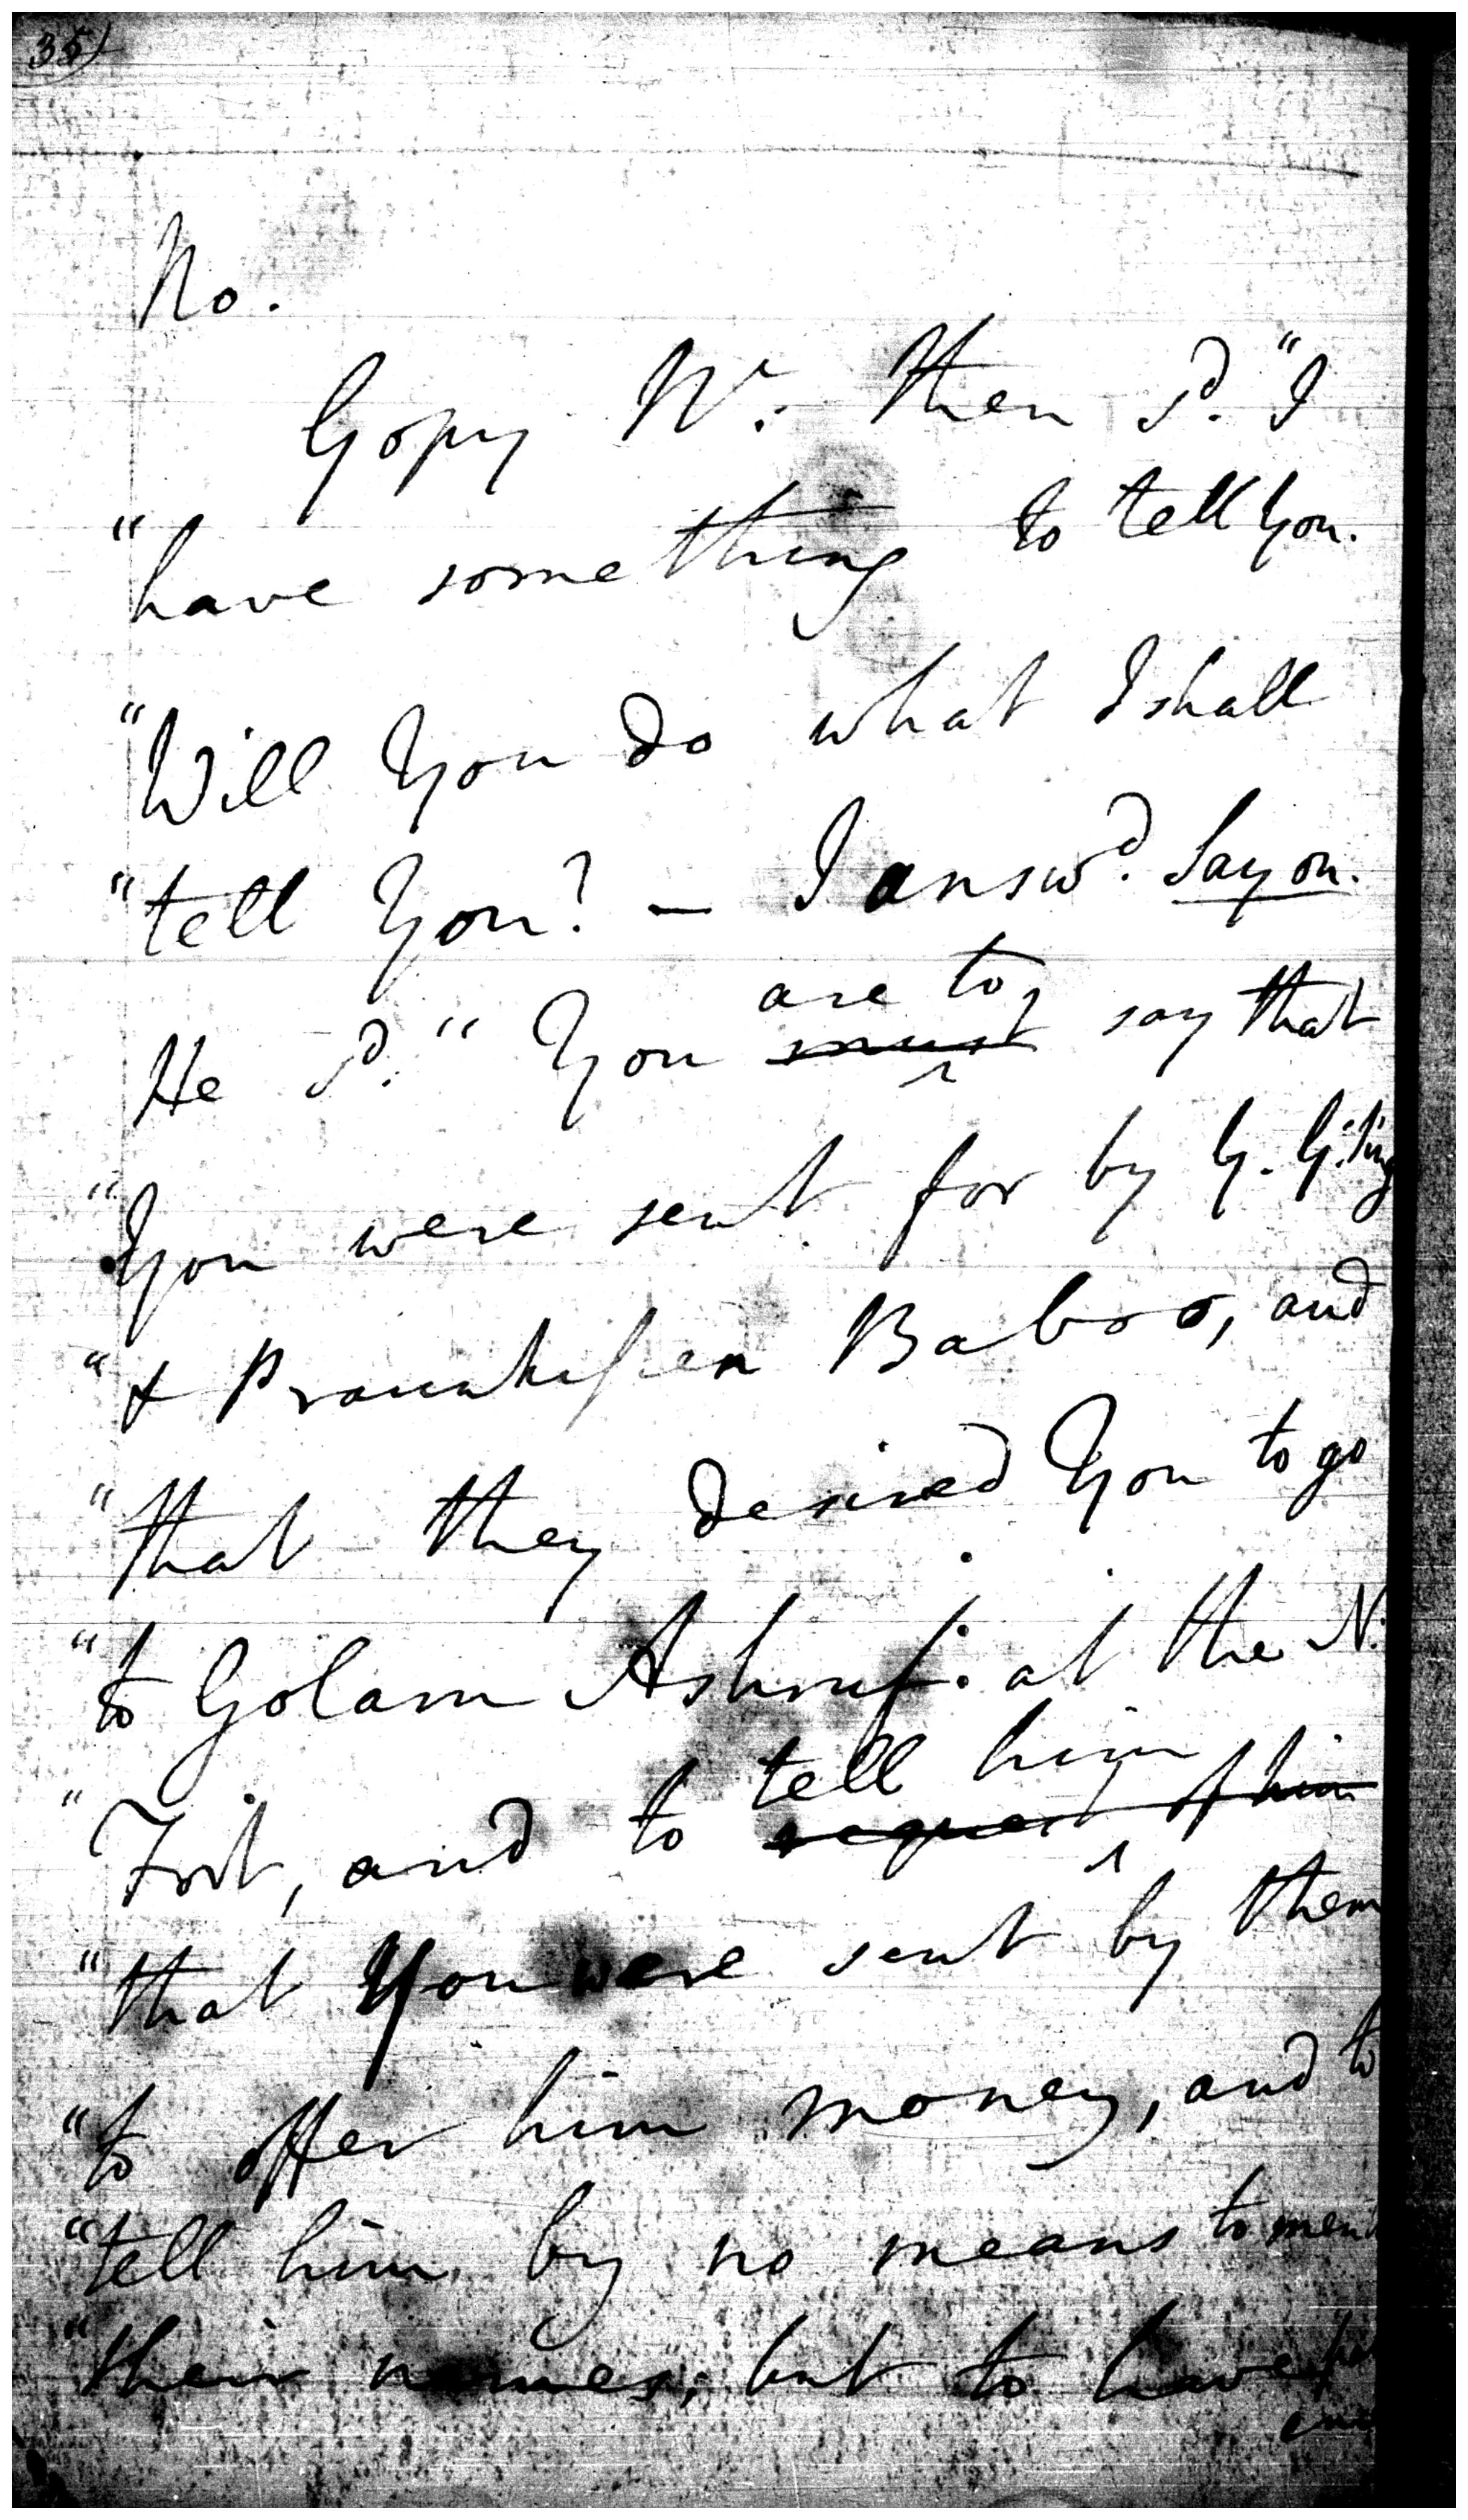 35)
No.
Gopy Nr. then sd. "I
"have something to tell You.
"Will You do what I shall
"tell You? — I answd. Say on.
are to
He sd. "You must say that
"You were sent for by G. G.
"& Praunkissen Baboo, and
"that they desired You to go
"to Golam Ashruf. at the N.
tell him
"Fort, and to request of him
"that You were sent by them
"to offer him money, and to
"tell him by no means to
"their names; but to have